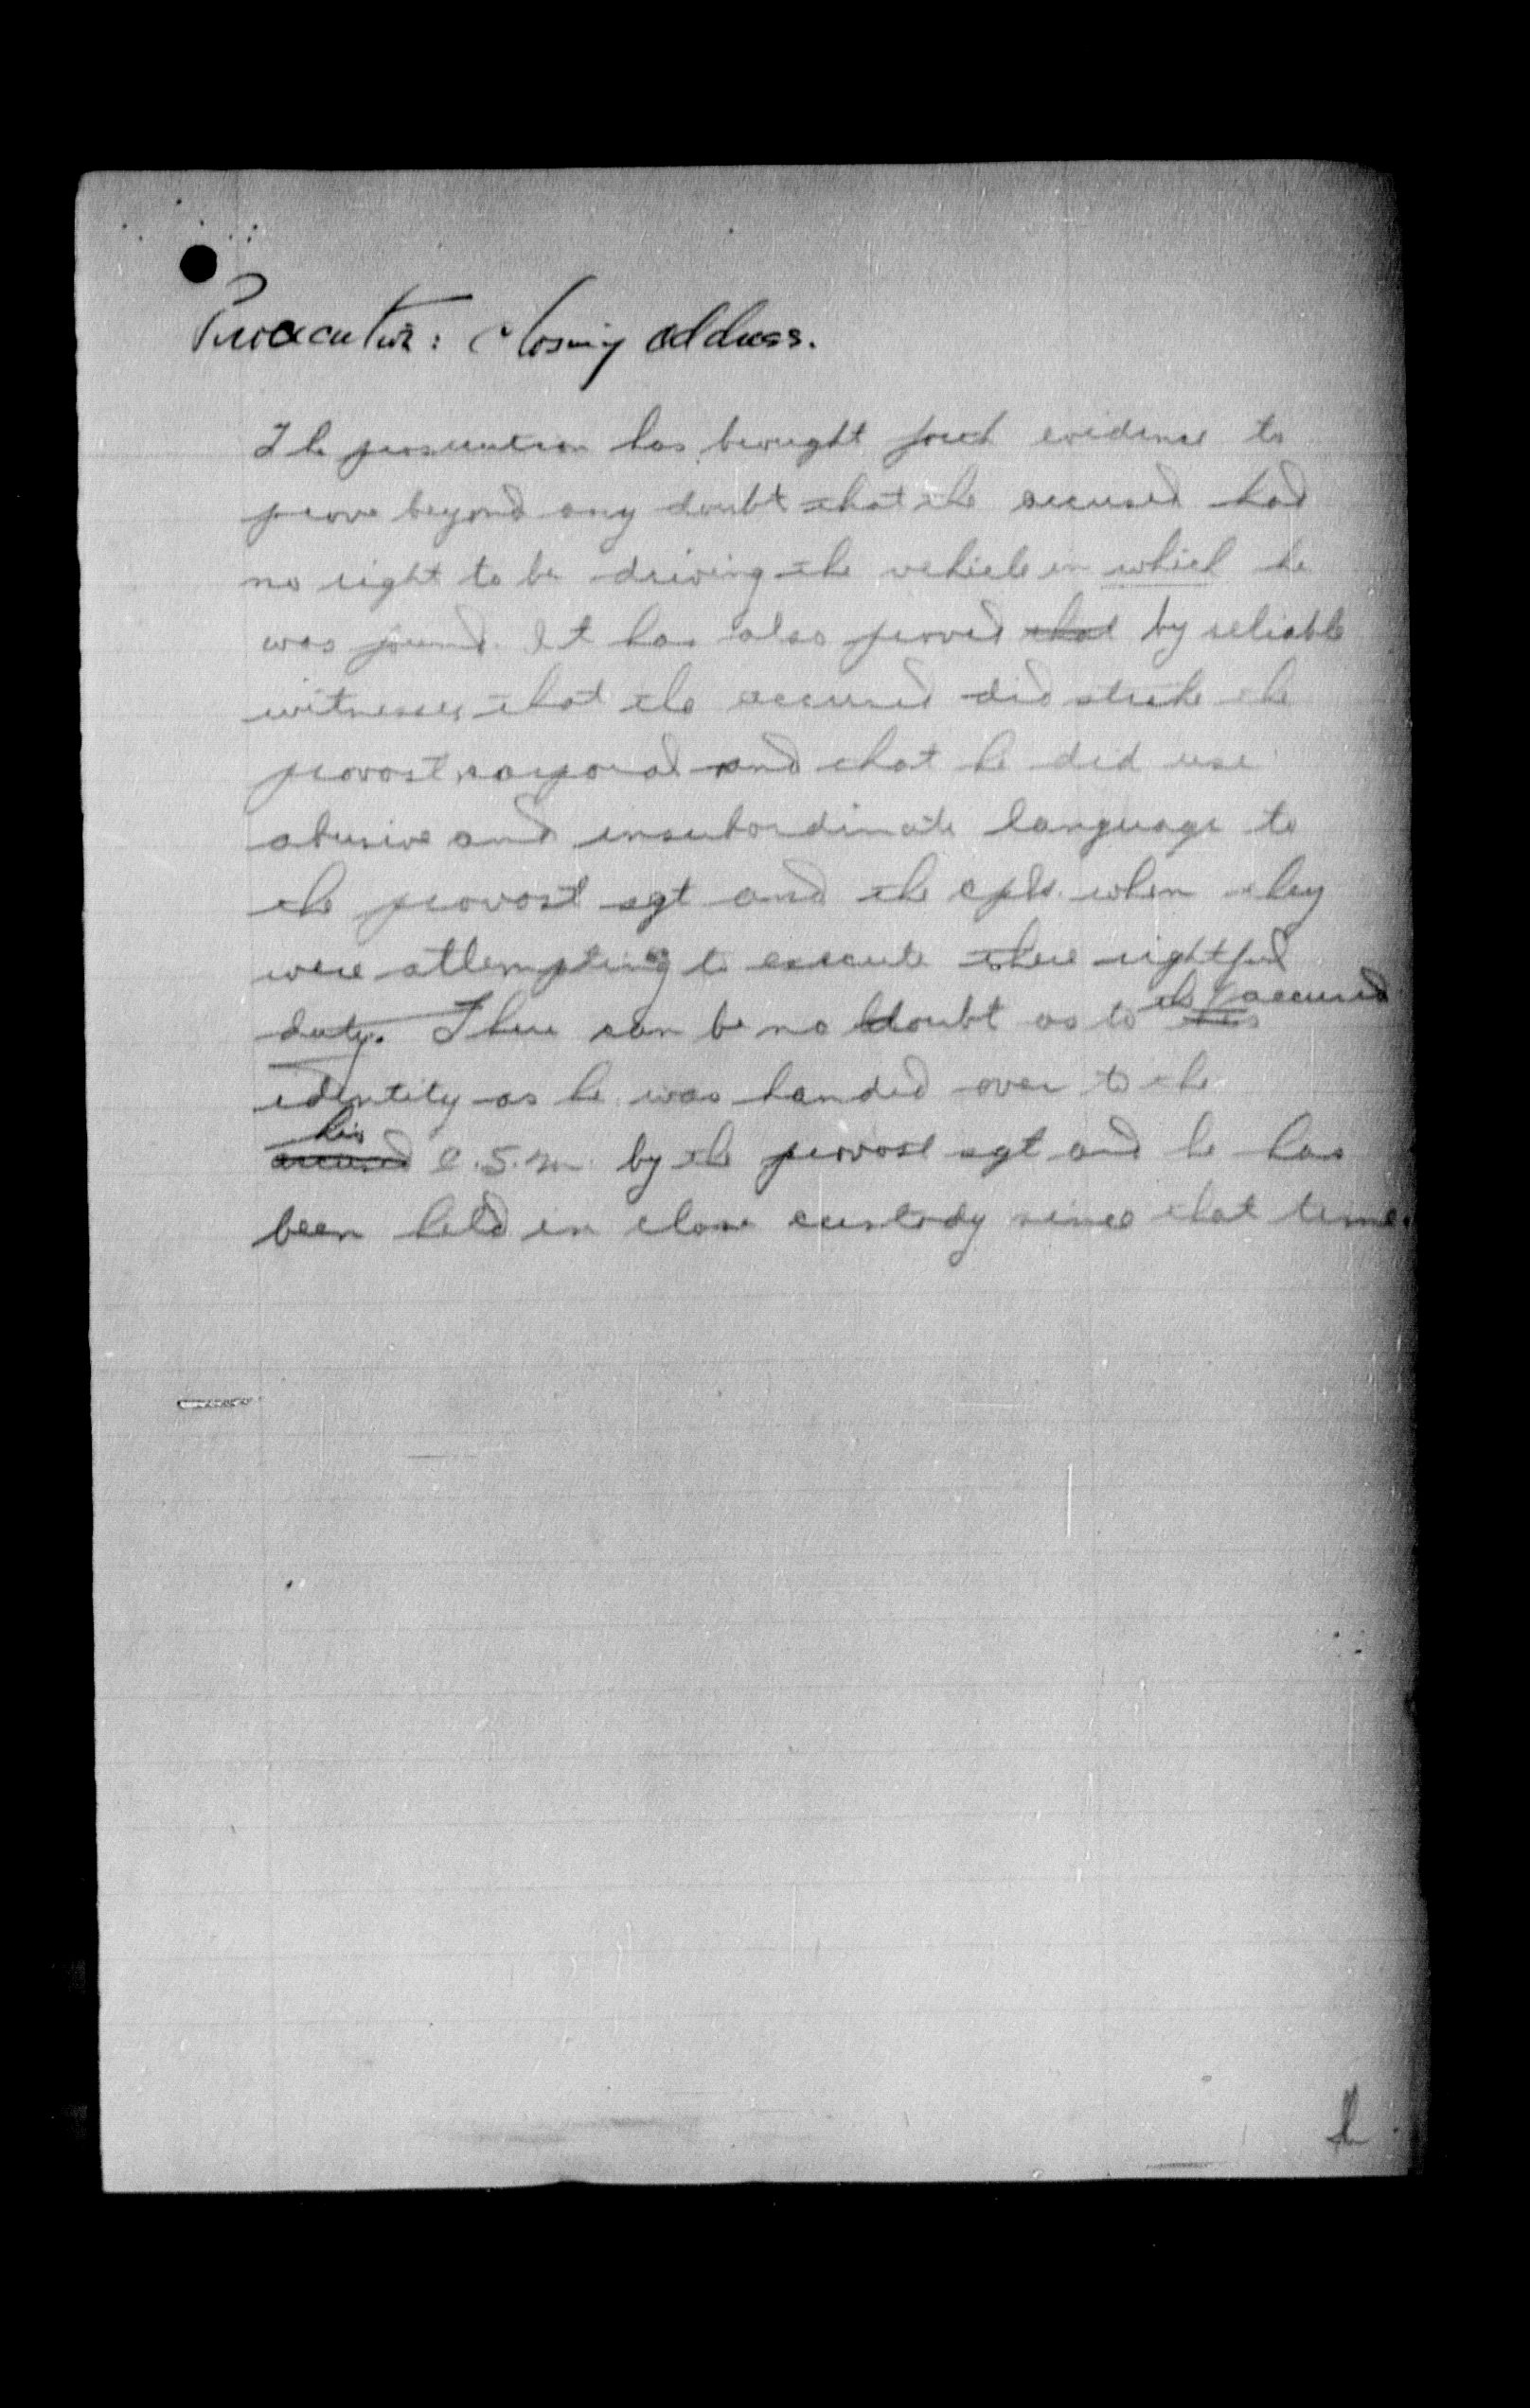 Prosecution: closing address.
The prosecution has brought forth evidence to
prove beyond any doubt that the accused had
no right to be driving the vehicle in which he
was found. It has also proved that by reliable
witnesses that the accused did strike the
provost corporal and that he did use
abusive and insubordinate language to
the provost sgt and the cpls. when they
were attempting to execute there rightful
duty. There can be no doubt as to his the accused
identity as he was handed over to the
accused his C.S.M. by the provost sgt and he has
been held in close custody since that time.